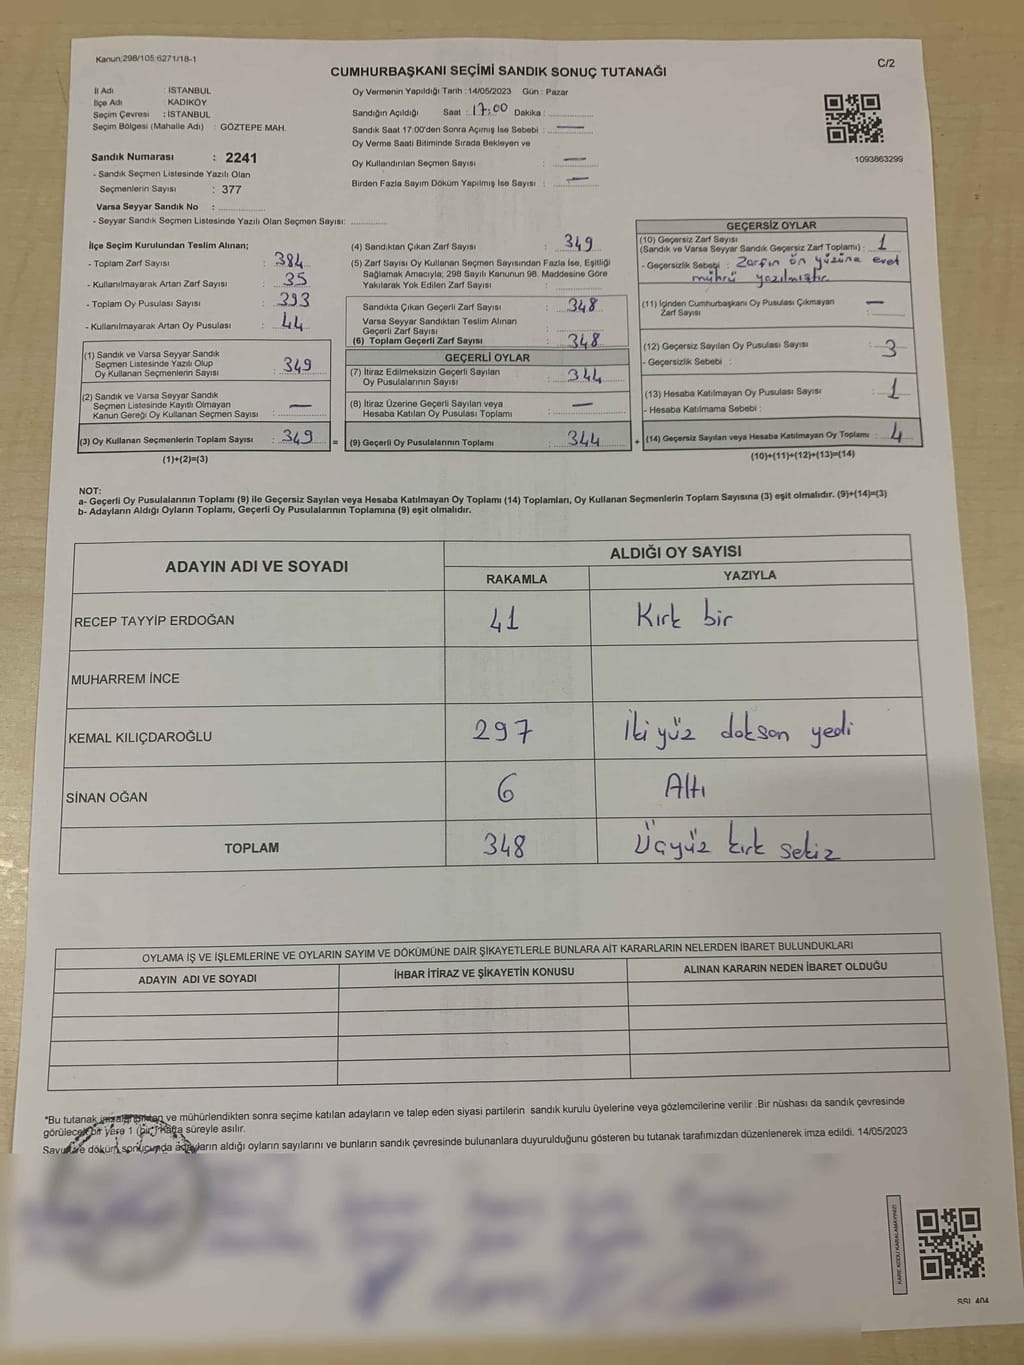 Kanun:298/105:6271/18-1
C/2
CUMHURBAŞKANI SEÇİMİ SANDIK SONUÇ TUTANAĞI
İl Adı : İSTANBUL
İlçe Adı : KADIKÖY
Seçim Çevresi : İSTANBUL
Seçim Bölgesi (Mahalle Adı) : GÖZTEPE MAH.
Sandık Numarası : 2241
- Sandık Seçmen Listesinde Yazılı Olan
Seçmenlerin Sayısı : 377
Varsa Seyyar Sandık No :
- Seyyar Sandık Seçmen Listesinde Yazılı Olan Seçmen Sayısı:
Oy Vermenin Yapıldığı Tarih :14/05/2023 Gün : Pazar
Sandığın Açıldığı Saat : 17:00 Dakika :
Sandık Saat 17:00'den Sonra Açımış İse Sebebi : —
Oy Verme Saati Bitiminde Sırada Bekleyen ve
Oy Kullandırılan Seçmen Sayısı : —
Birden Fazla Sayım Döküm Yapılmış İse Sayısı : —
1093863299
İlçe Seçim Kurulundan Teslim Alınan;
- Toplam Zarf Sayısı : 384
- Kullanılmayarak Artan Zarf Sayısı : 35
- Toplam Oy Pusulası Sayısı : 393
- Kullanılmayarak Artan Oy Pusulası : 44
(1) Sandık ve Varsa Seyyar Sandık
Seçmen Listesinde Yazılı Olup
Oy Kullanan Seçmenlerin Sayısı : 349
(2) Sandık ve Varsa Seyyar Sandık
Seçmen Listesinde Kayıtlı Olmayan
Kanun Gereği Oy Kullanan Seçmen Sayısı : —
(3) Oy Kullanan Seçmenlerin Toplam Sayısı : 349 =
(1)+(2)=(3)
(4) Sandıktan Çıkan Zarf Sayısı : 349
(5) Zarf Sayısı Oy Kullanan Seçmen Sayısından Fazla İse, Eşitliği
Sağlamak Amacıyla; 298 Sayılı Kanunun 98. Maddesine Göre
Yakılarak Yok Edilen Zarf Sayısı :
Sandıkta Çıkan Geçerli Zarf Sayısı : 348
Varsa Seyyar Sandıktan Teslim Alınan
Geçerli Zarf Sayısı :
(6) Toplam Geçerli Zarf Sayısı : 348
GEÇERLİ OYLAR
(7) İtiraz Edilmeksizin Geçerli Sayılan
Oy Pusulalarının Sayısı : 344
(8) İtiraz Üzerine Geçerli Sayılan veya
Hesaba Katılan Oy Pusulası Toplamı : —
(9) Geçerli Oy Pusulalarının Toplamı : 344 +
GEÇERSİZ OYLAR
(10) Geçersiz Zarf Sayısı
(Sandık ve Varsa Seyyar Sandık Geçersiz Zarf Toplamı) : 1
- Geçersizlik Sebebi : Zarfın ön yüzüne evet
mührü yazılmıştır
(11) İçinden Cumhurbaşkanı Oy Pusulası Çıkmayan
Zarf Sayısı : —
(12) Geçersiz Sayılan Oy Pusulası Sayısı : 3
- Geçersizlik Sebebi :
(13) Hesaba Katılmayan Oy Pusulası Sayısı : 1
- Hesaba Katılmama Sebebi :
(14) Geçersiz Sayılan veya Hesaba Katılmayan Oy Toplamı : 4
(10)+(11)+(12)+(13)=(14)
NOT:
a- Geçerli Oy Pusulalarının Toplamı (9) ile Geçersiz Sayılan veya Hesaba Katılmayan Oy Toplamı (14) Toplamları, Oy Kullanan Seçmenlerin Toplam Sayısına (3) eşit olmalıdır. (9)+(14)=(3)
b- Adayların Aldığı Oyların Toplamı, Geçerli Oy Pusulalarının Toplamına (9) eşit olmalıdır.
ADAYIN ADI VE SOYADI
ALDIĞI OY SAYISI
RAKAMLA YAZIYLA
RECEP TAYYİP ERDOĞAN 41 Kırk bir
MUHARREM İNCE
KEMAL KILIÇDAROĞLU 297 İkiyüz doksan yedi
SİNAN OĞAN 6 Altı
TOPLAM 348 Üçyüz kırk sekiz
OYLAMA İŞ VE İŞLEMLERİNE VE OYLARIN SAYIM VE DÖKÜMÜNE DAİR ŞİKAYETLERLE BUNLARA AİT KARARLARIN NELERDEN İBARET BULUNDUKLARI
ADAYIN ADI VE SOYADI İHBAR İTİRAZ VE ŞİKAYETİN KONUSU ALINAN KARARIN NEDEN İBARET OLDUĞU
*Bu tutanak ve mühürlendikten sonra seçime katılan adayların ve talep eden siyasi partilerin sandık kurulu üyelerine veya gözlemcilerine verilir .Bir nüshası da sandık çevresinde
görülecek bir yere 1 (bir) hafta süreyle asılır.
Sayım ve döküm sonucunda adayların aldığı oyların sayılarını ve bunların sandık çevresinde bulunanlara duyurulduğunu gösteren bu tutanak tarafımızdan düzenlenerek imza edildi. 14/05/2023
KARE KODU KARALAMAYINIZ!